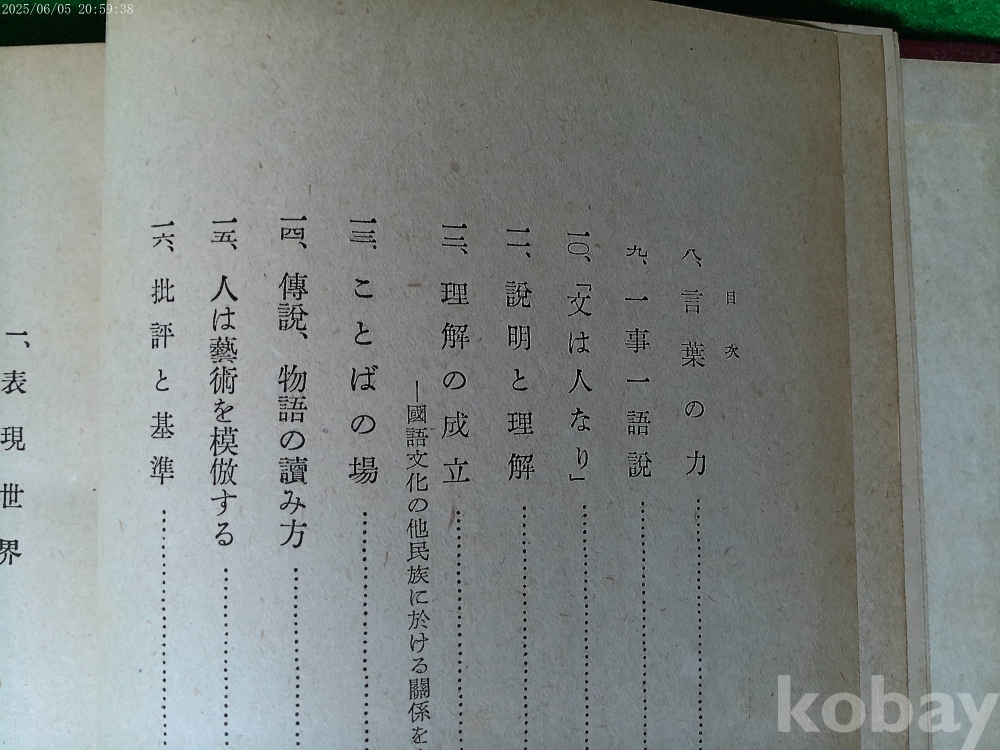 2025/06/05 20:59:38
目次
八、言葉の力
九、一事一語説
一〇、「文は人なり」
一一、説明と理解
一二、理解の成立
―國語文化の他民族に於ける關係を
一三、ことばの場
一四、傳説、物語の讀み方
一五、人は藝術を模倣する
一六、批評と基準
一、表現世界
kobay